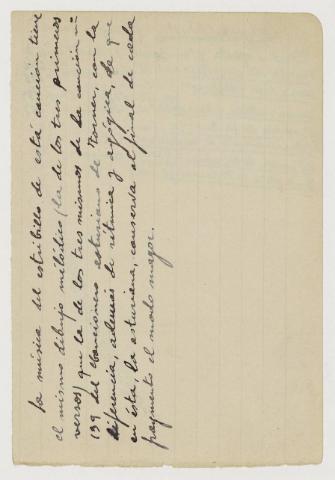 La música del estribillo de está canción tiene
el mismo dibujo mélodico (la de los tres primeros
versos) que la de los tres mismos de la canción nº
139 del Cancionero asturiano de Torner, con la
diferencia, además de rítmica y agógica, de que
en ésta, la asturiana, conserva al final de cada
fragmento el modo mayor.